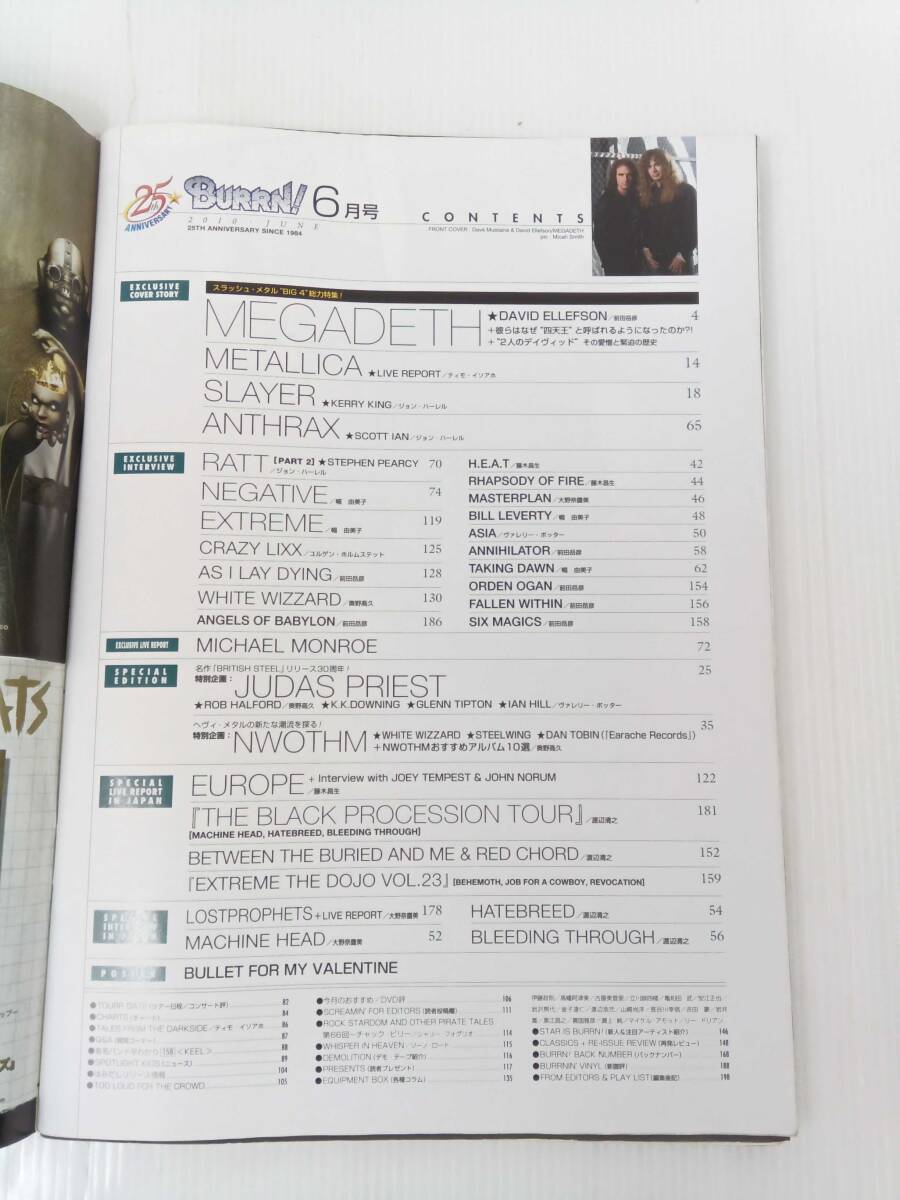 25th ANNIVERSARY
BURRN! 6月号
2010 JUNE
25TH ANNIVERSARY SINCE 1984
CONTENTS
FRONT COVER : Dave Mustaine & David Ellefson/MEGADETH
pic : Micah Smith
EXCLUSIVE COVER STORY
スラッシュ・メタル"BIG 4"総力特集!
MEGADETH ★DAVID ELLEFSON/前田岳彦 4
+彼らはなぜ"四天王"と呼ばれるようになったのか?!
+"2人のデイヴィッド" その愛憎と緊迫の歴史
METALLICA ★LIVE REPORT/ティモ・イソアホ 14
SLAYER ★KERRY KING/ジョン・ハーレル 18
ANTHRAX ★SCOTT IAN/ジョン・ハーレル 65
EXCLUSIVE INTERVIEW
RATT [PART 2] ★STEPHEN PEARCY/ジョン・ハーレル 70
NEGATIVE/幅 由美子 74
EXTREME/幅 由美子 119
CRAZY LIXX/ユルゲン・ホルムステット 125
AS I LAY DYING/前田岳彦 128
WHITE WIZZARD/奥野高久 130
ANGELS OF BABYLON/前田岳彦 186
H.E.A.T/藤木昌生 42
RHAPSODY OF FIRE/藤木昌生 44
MASTERPLAN/大野奈鷹美 46
BILL LEVERTY/幅 由美子 48
ASIA/ヴァレリー・ポッター 50
ANNIHILATOR/前田岳彦 58
TAKING DAWN/幅 由美子 62
ORDEN OGAN/前田岳彦 154
FALLEN WITHIN/前田岳彦 156
SIX MAGICS/前田岳彦 158
EXCLUSIVE LIVE REPORT
MICHAEL MONROE 72
SPECIAL EDITION
名作「BRITISH STEEL」リリース30周年!
特別企画: JUDAS PRIEST 25
★ROB HALFORD/奥野高久 ★K.K.DOWNING ★GLENN TIPTON ★IAN HILL/ヴァレリー・ポッター
ヘヴィ・メタルの新たな潮流を探る!
特別企画: NWOTHM ★WHITE WIZZARD ★STEELWING ★DAN TOBIN(「Earache Records」) 35
+NWOTHMおすすめアルバム10選/奥野高久
SPECIAL LIVE REPORT IN JAPAN
EUROPE + Interview with JOEY TEMPEST & JOHN NORUM/藤木昌生 122
『THE BLACK PROCESSION TOUR』/渡辺清之 181
[MACHINE HEAD, HATEBREED, BLEEDING THROUGH]
BETWEEN THE BURIED AND ME & RED CHORD/渡辺清之 152
『EXTREME THE DOJO VOL.23』[BEHEMOTH, JOB FOR A COWBOY, REVOCATION] 159
SPECIAL INTERVIEW IN JAPAN
LOSTPROPHETS+LIVE REPORT/大野奈鷹美 178
MACHINE HEAD/大野奈鷹美 52
HATEBREED/渡辺清之 54
BLEEDING THROUGH/渡辺清之 56
POSTER
BULLET FOR MY VALENTINE
●TOURR DATE(ツアー日程/コンサート評) 82
●CHARTS(チャート) 84
●TALES FROM THE DARKSIDE/ティモ・イソアホ 86
●Q&A(質問コーナー) 87
●有名バンド早わかり[158]<KEEL> 88
●SPOTLIGHT KIDS(ニュース) 89
●はみだしリリース情報 104
●TOO LOUD FOR THE CROWD 105
●今月のおすすめ/DVD評 106
●SCREAMIN' FOR EDITORS(読者投稿欄) 111
●ROCK STARDOM AND OTHER PIRATE TALES
第66回―チャック・ビリー/シャノン・フォグリオ 114
●WHISPER IN HEAVEN/ゾーノ・ロート 115
●DEMOLITION(デモ・テープ紹介) 116
●PRESENTS(読者プレゼント) 117
●EQUIPMENT BOX(各種コラム) 135
●STAR IS BURRN!(新人&注目アーティスト紹介) 146
●CLASSICS + RE-ISSUE REVIEW(再発レビュー) 148
●BURRN! BACK NUMBER(バックナンバー) 168
●BURRNIN' VINYL(新譜評) 188
●FROM EDITORS & PLAY LIST(編集後記) 198